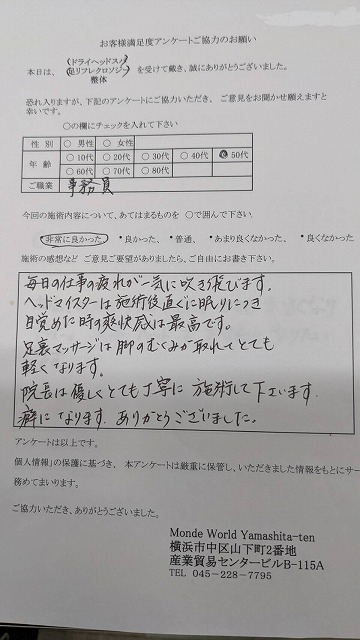 お客様満足度アンケートご協力のお願い
ドライヘッドスパ
本日は、 足リフレクロソジー を受けて戴き、誠にありがとうございました。
整体
恐れ入りますが、下記のアンケートにご協力いただき、ご意見をお聞かせ願えますと
幸いです。
○の欄にチェックを入れて下さい
性 別 ○ 男性 ○ 女性
年 齢 ○ 10代 ○ 20代 ○ 30代 ○ 40代 ○ 50代
○ 60代 ○ 70代 ○ 80代
ご職業 事務員
今回の施術内容について、あてはまるものを ○で囲んで下さい
・非常に良かった、 ・良かった、 ・普通、 ・あまり良くなかった、 ・良くなかった
施術の感想など ご意見ご要望がありましたら、ご自由にお書き下さい。
毎日の仕事の疲れが一気に吹き飛びます。
ヘッドマイスターは施術後直ぐに眠りにつき
目覚めた時の爽快感は最高です。
足裏マッサージは脚のむくみが取れてとても
軽くなります。
院長は優しくとても丁寧に施術して下さいます.
癖になります. ありがとうございました。
アンケートは以上です。
個人情報」の保護に基づき、 本アンケートは厳重に保管し、いただきました情報をもとにサー
務めてまいります。
ご協力いただき、ありがとうございました。
Monde World Yamashita-ten
横浜市中区山下町2番地
産業貿易センタービルB-115A
TEL 045-228-7795